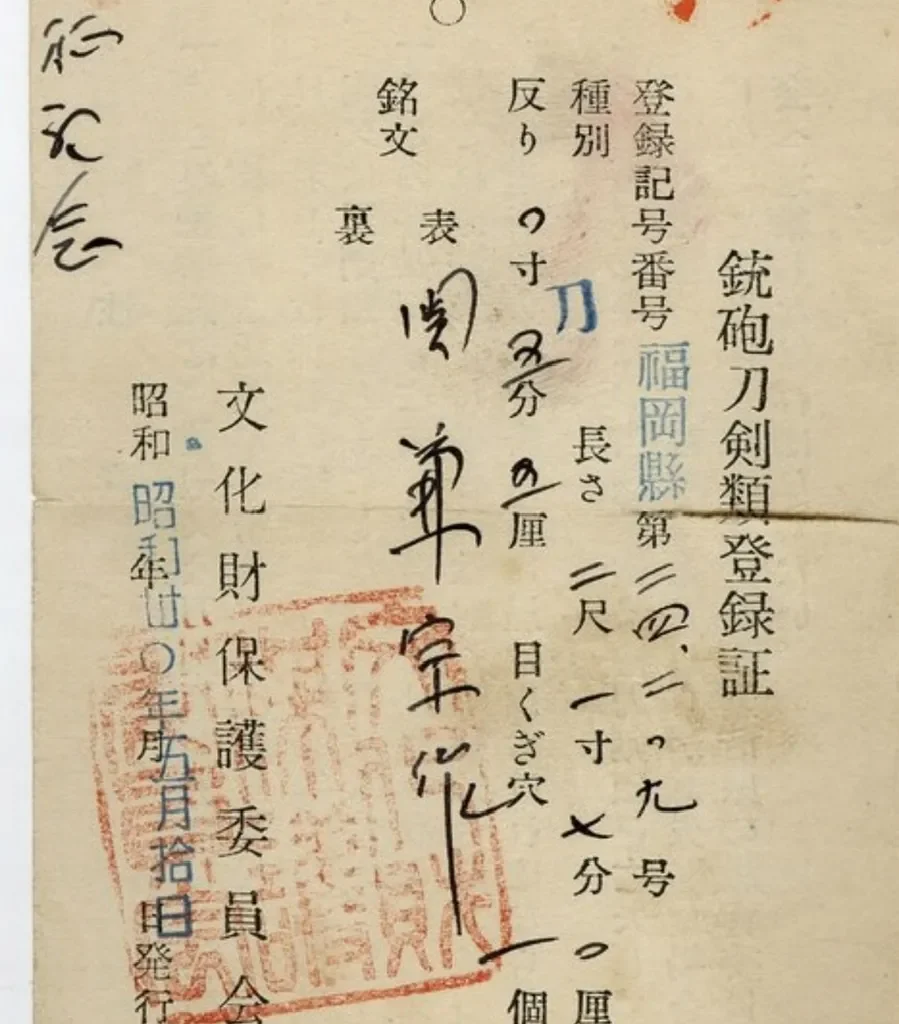 銃砲刀剣類登録証
登録記号番号 福岡縣 第二四、二〇九号
種別 刀 長さ 二尺 一寸 七分 〇厘
反り 〇寸 五分 五厘 目くぎ穴 一個
銘文 表 関兼宗作
裏
文化財保護委員会
昭和 年 月 日発行
昭和卅〇年五月拾日
会